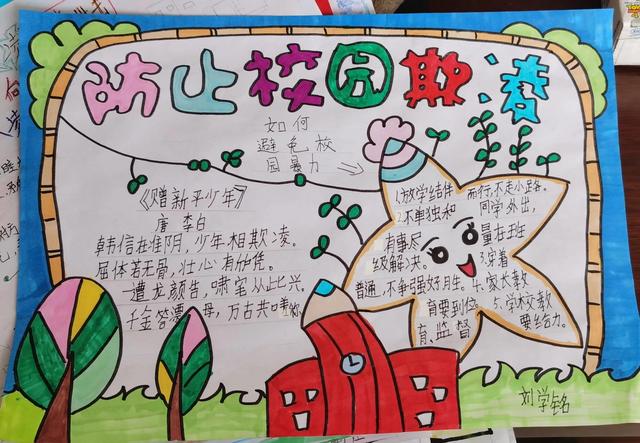 防止校园欺凌
如何
避免校
园暴力
《赠新平少年》
唐 李白
韩信在淮阴，少年相欺凌。
屈体若无骨，壮心有所凭。
一遭龙颜君，啸笔从此兴。
千金答漂母，万古共嗟称。
1.放学结伴而行，不走小路。
2.不单独和同学外出，
有事尽量在班
级解决。3.穿着
普通，不争强好月生。4.家长教
育要到位 5.学校教
育、监督要给力。
刘学铭